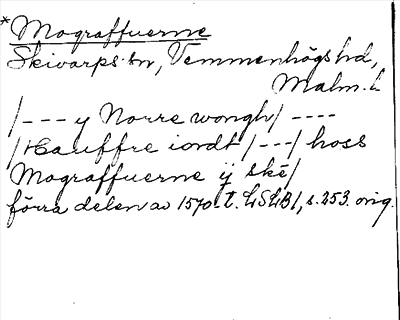 *Mograffuerne
Skivarps sn, Vemmenhögs hd,
Malm. L
/--- y Norre wongh/ ----
/Hauffre iordt/---/ hoss
Mograffuerne ÿ skē/
förra delen av 1570-t. LSLB1, s. 253. orig.